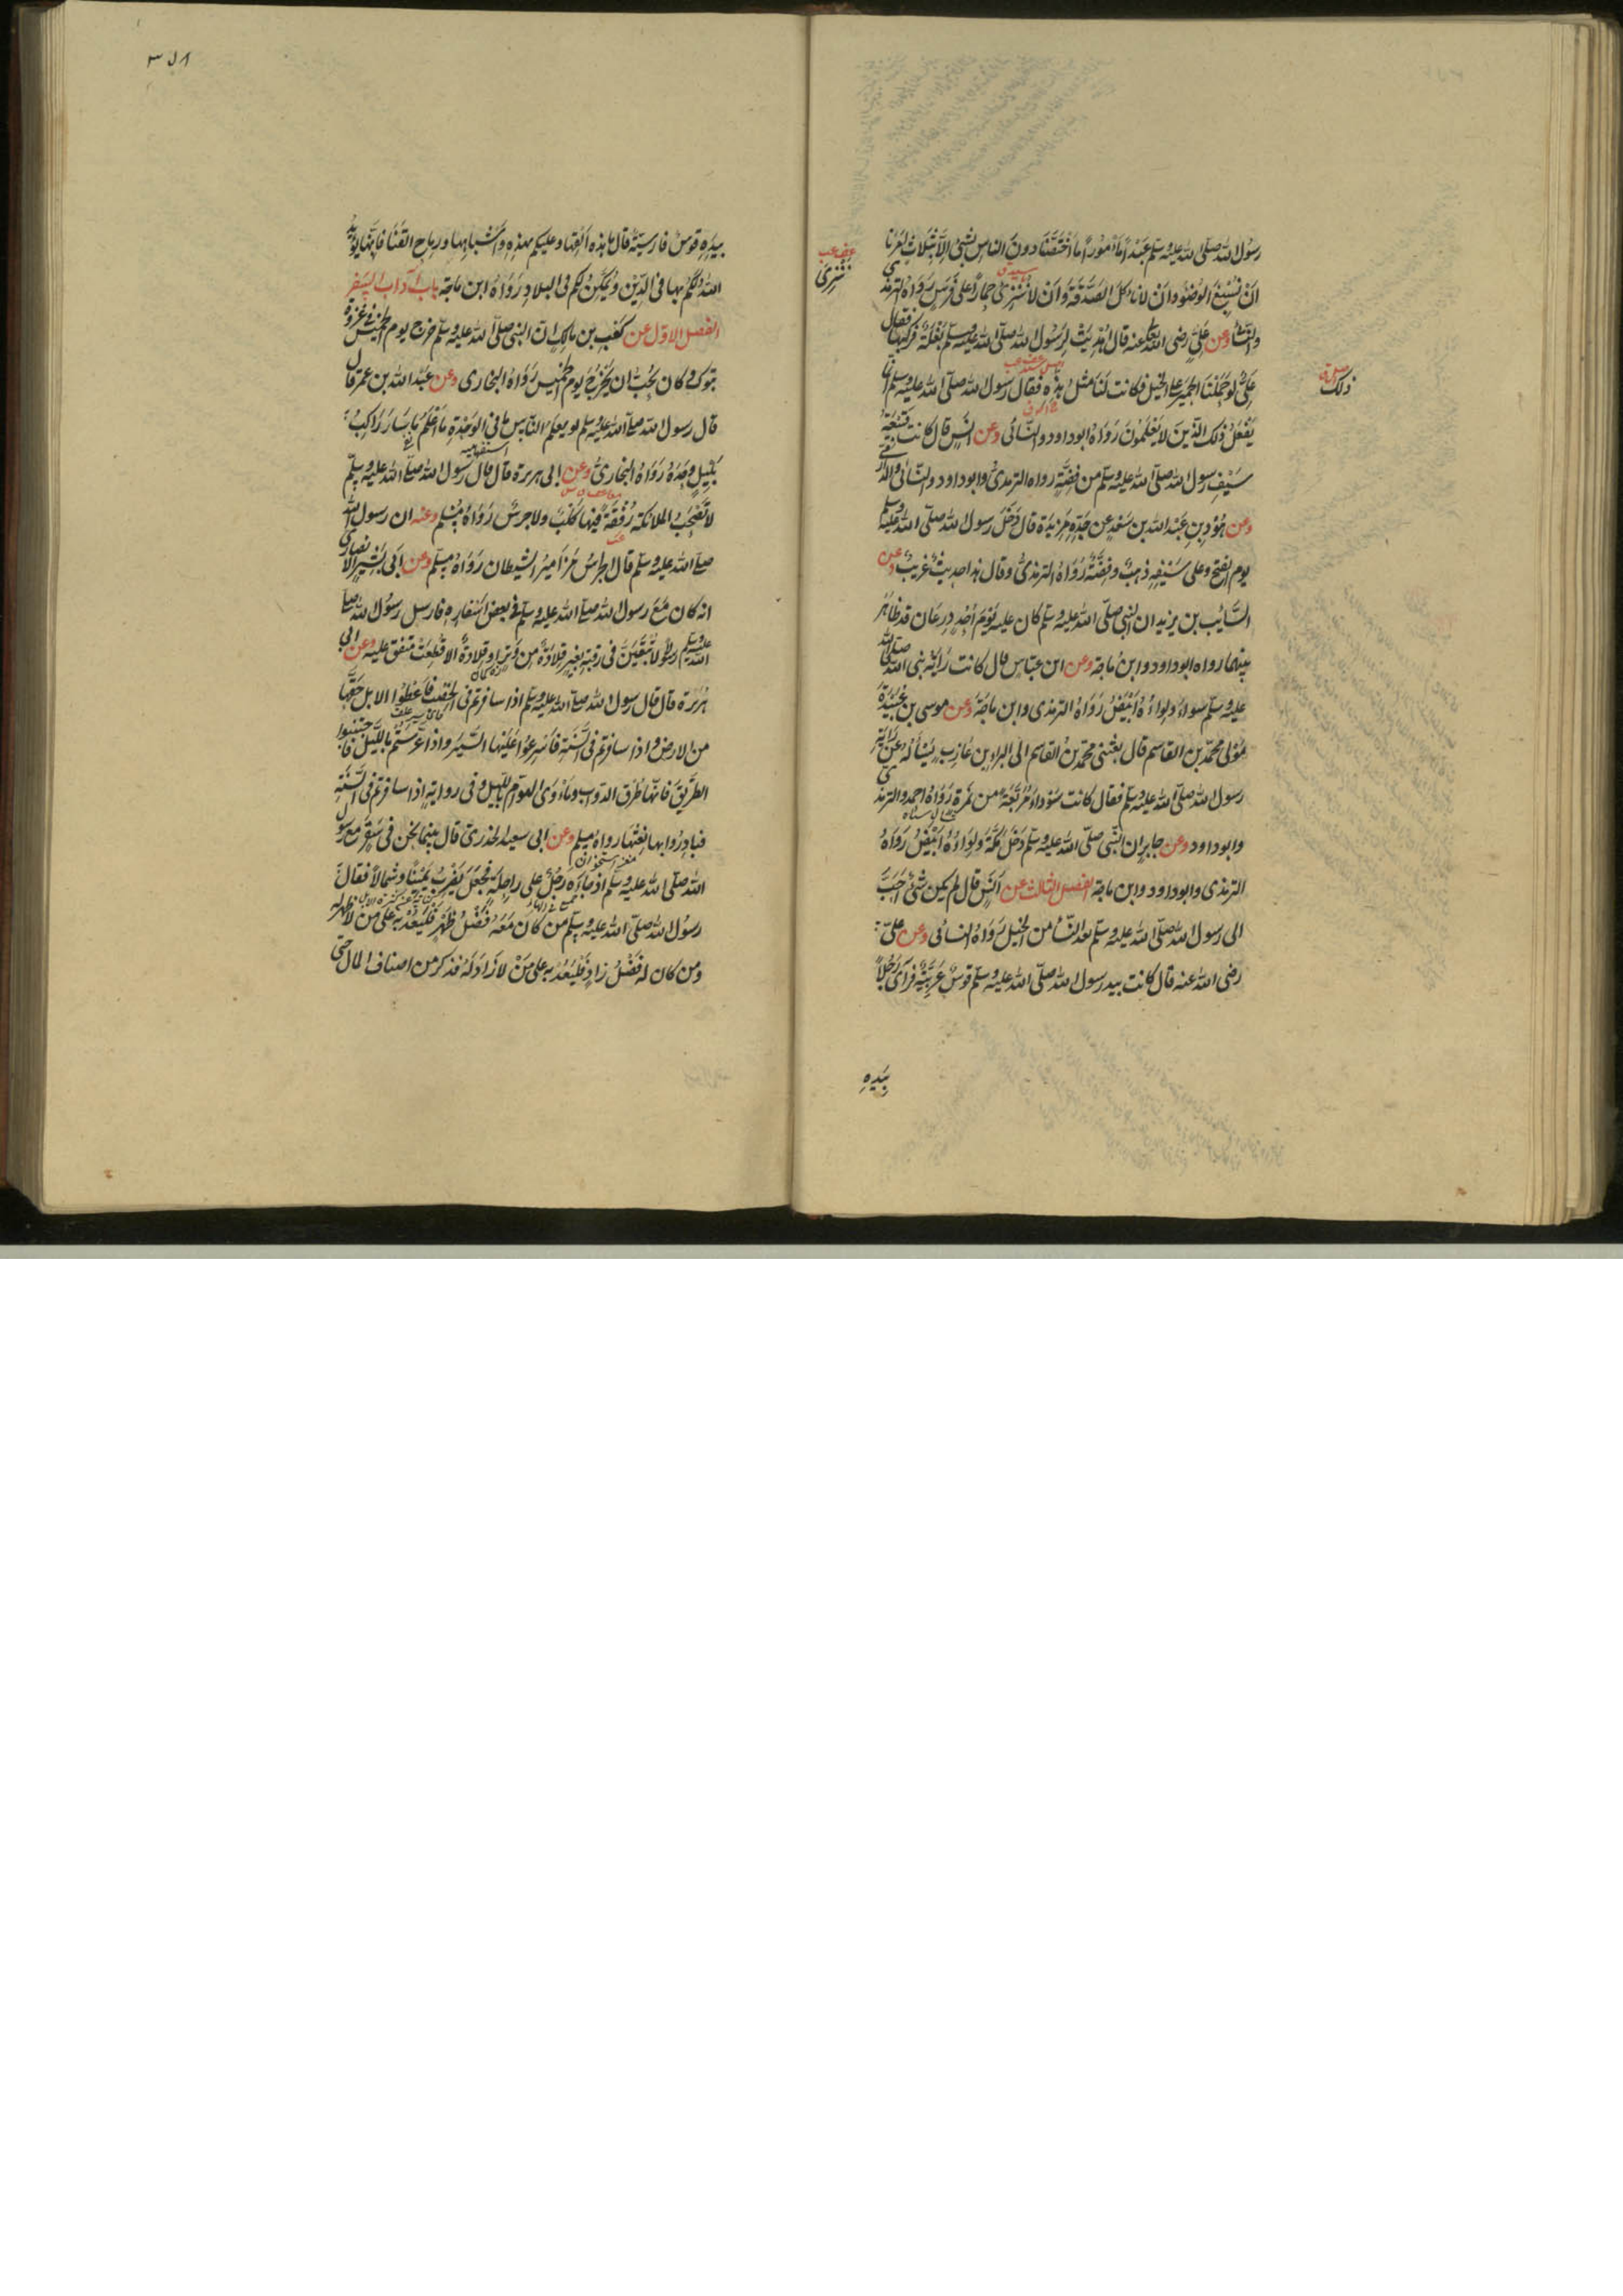 رسول الله صلى الله عليه وسلم عبدا مأمورا ما اختصنا دون الناس بشئ الا بثلاث امرنا
ان نسبغ الوضوء وان لا نأكل الصدقة وان لا ننزى حمارا على فرس رواه الترمذى
والنسائى وعن على رضى الله عنه قال اهديت لرسول الله صلى الله عليه وسلم بغلة فركبها فقال
على لو حملنا الحمير على الخيل فكانت لنا مثل هذه فقال رسول الله صلى الله عليه وسلم انما
يفعل ذلك الذين لا يعلمون رواه ابوداود والنسائى وعن انس قال كانت قبيعة
سيف رسول الله صلى الله عليه وسلم من فضة رواه الترمذى وابوداود والنسائى والدارمى
وعن هود بن عبد الله بن سعد عن جده مزيدة قال دخل رسول الله صلى الله عليه وسلم
يوم الفتح وعلى سيفه ذهب وفضة رواه الترمذى وقال هذا حديث غريب وعن
السائب بن يزيد ان النبى صلى الله عليه وسلم كان عليه يوم احد درعان قد ظاهر
بينهما رواه ابوداود وابن ماجة وعن ابن عباس قال كانت راية نبى الله صلى الله
عليه وسلم سوداء ولواءه ابيض رواه الترمذى وابن ماجة وعن موسى بن عبيدة
مولى محمد بن القاسم قال بعثنى محمد بن القاسم الى البراء بن عازب يسأله عن راية
رسول الله صلى الله عليه وسلم فقال كانت سوداء مربعة من نمرة رواه احمد والترمذى
وابوداود وعن جابر ان النبى صلى الله عليه وسلم دخل مكة ولواءه ابيض رواه
الترمذى وابوداود وابن ماجة الفصل الثالث عن انس قال لم يكن شئ احب
الى رسول الله صلى الله عليه وسلم بعد النساء من الخيل رواه النسائى وعن على
رضى الله عنه قال كانت بيد رسول الله صلى الله عليه وسلم قوس عربية فرأى رجلا
بيده
ننزى
ذلك
٣٥٨
بيده قوس فارسية قال ما هذه القها وعليكم بهذه واشباهها ورماح القنا فانها يؤيد
الله لكم بها فى الدين ويمكن لكم فى البلاد رواه ابن ماجة باب آداب السفر
الفصل الاول عن كعب بن مالك ان النبى صلى الله عليه وسلم خرج يوم الخميس فى غزوة
تبوك وكان يحب ان يخرج يوم الخميس رواه البخارى وعن عبد الله بن عمر قال
قال رسول الله صلى الله عليه وسلم لو يعلم الناس ما فى الوحدة ما اعلم ما سار راكب
بليل وحده رواه البخارى وعن ابى هريرة قال قال رسول الله صلى الله عليه وسلم
لا تصحب الملائكة رفقة فيها كلب ولا جرس رواه مسلم وعنه ان رسول الله
صلى الله عليه وسلم قال الجرس مزامير الشيطان رواه مسلم وعن ابى بشير الانصارى
انه كان مع رسول الله صلى الله عليه وسلم فى بعض اسفاره فارسل رسول الله صلى
الله عليه وسلم رسولا لا تبقين فى رقبة بعير قلادة من وتر او قلادة الا قطعت متفق عليه وعن ابى
هريرة قال قال رسول الله صلى الله عليه وسلم اذا سافرتم فى الخصب فاعطوا الابل حقها
من الارض واذا سافرتم فى السنة فاسرعوا عليها السير واذا عرستم بالليل فاجتنبوا
الطريق فانها طرق الدواب وماوى الهوام بالليل وفى رواية اذا سافرتم فى السنة
فبادروا بها نقيها رواه مسلم وعن ابى سعيد الخدرى قال بينما نحن فى سفر مع رسول
الله صلى الله عليه وسلم اذ جاءه رجل على راحلة فجعل يضرب يمينا وشمالا فقال
رسول الله صلى الله عليه وسلم من كان معه فضل ظهر فليعد به على من لا ظهر له
ومن كان له فضل زاد فليعد به على من لا زاد له فذكر من اصناف المال حتى